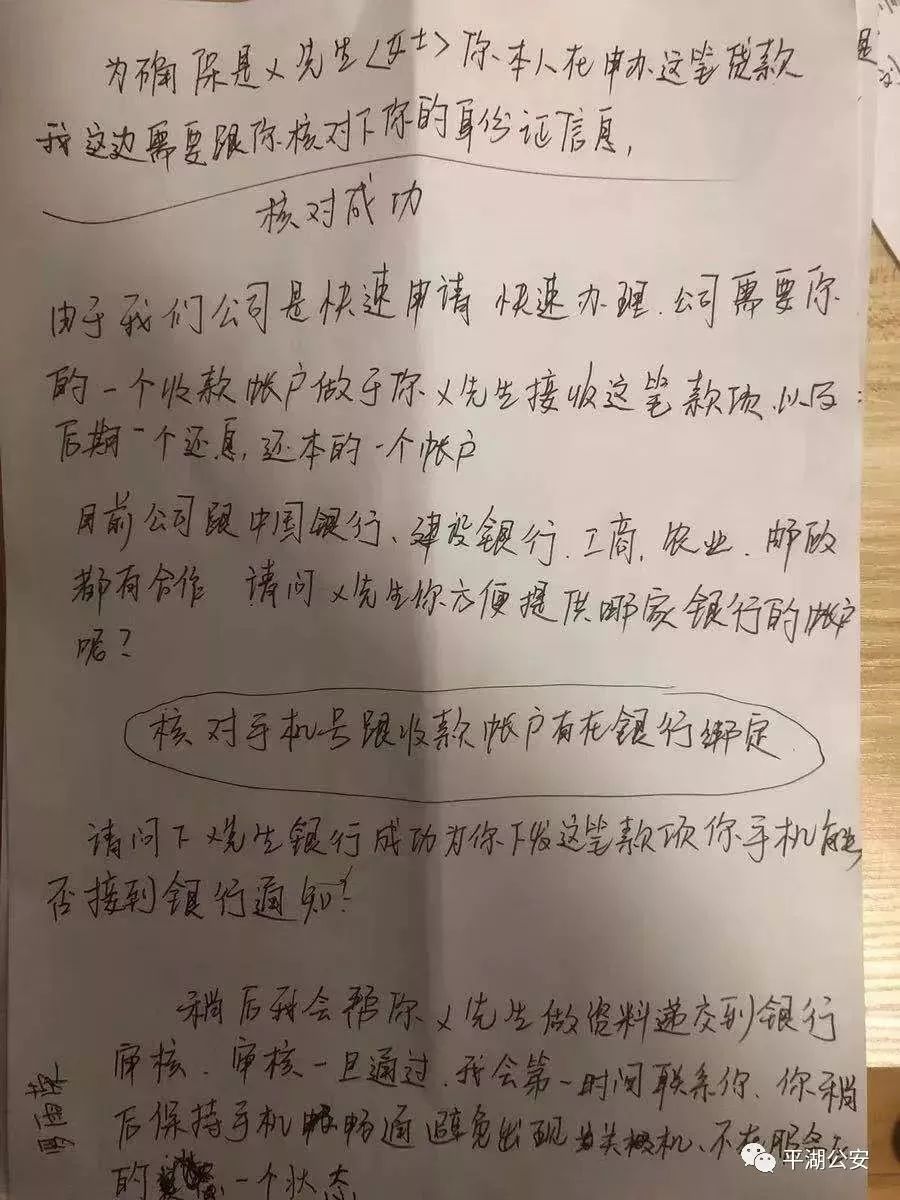 为确保是X先生<女士>你本人在申办这笔贷款
我这边需要跟你核对下你的身份证信息,
核对成功
由于我们公司是快速申请 快速办理.公司需要你
的一个收款帐户做于你X先生接收这笔款项.以及
后期一个还息,还本的一个帐户
目前公司跟中国银行、建设银行.工商,农业.邮政
都有合作 请问X先生你方便提供哪家银行的帐户
呢?
核对手机号跟收款帐户有在银行绑定
请问下X先生银行成功为你下发这笔款项你手机能
否接到银行通知?
稍后我会帮你X先生做资料递交到银行
审核.审核一旦通过.我会第一时间联系你.你稍
后保持手机畅通避免出现关机、不在服务区
的一个状态
平湖公安